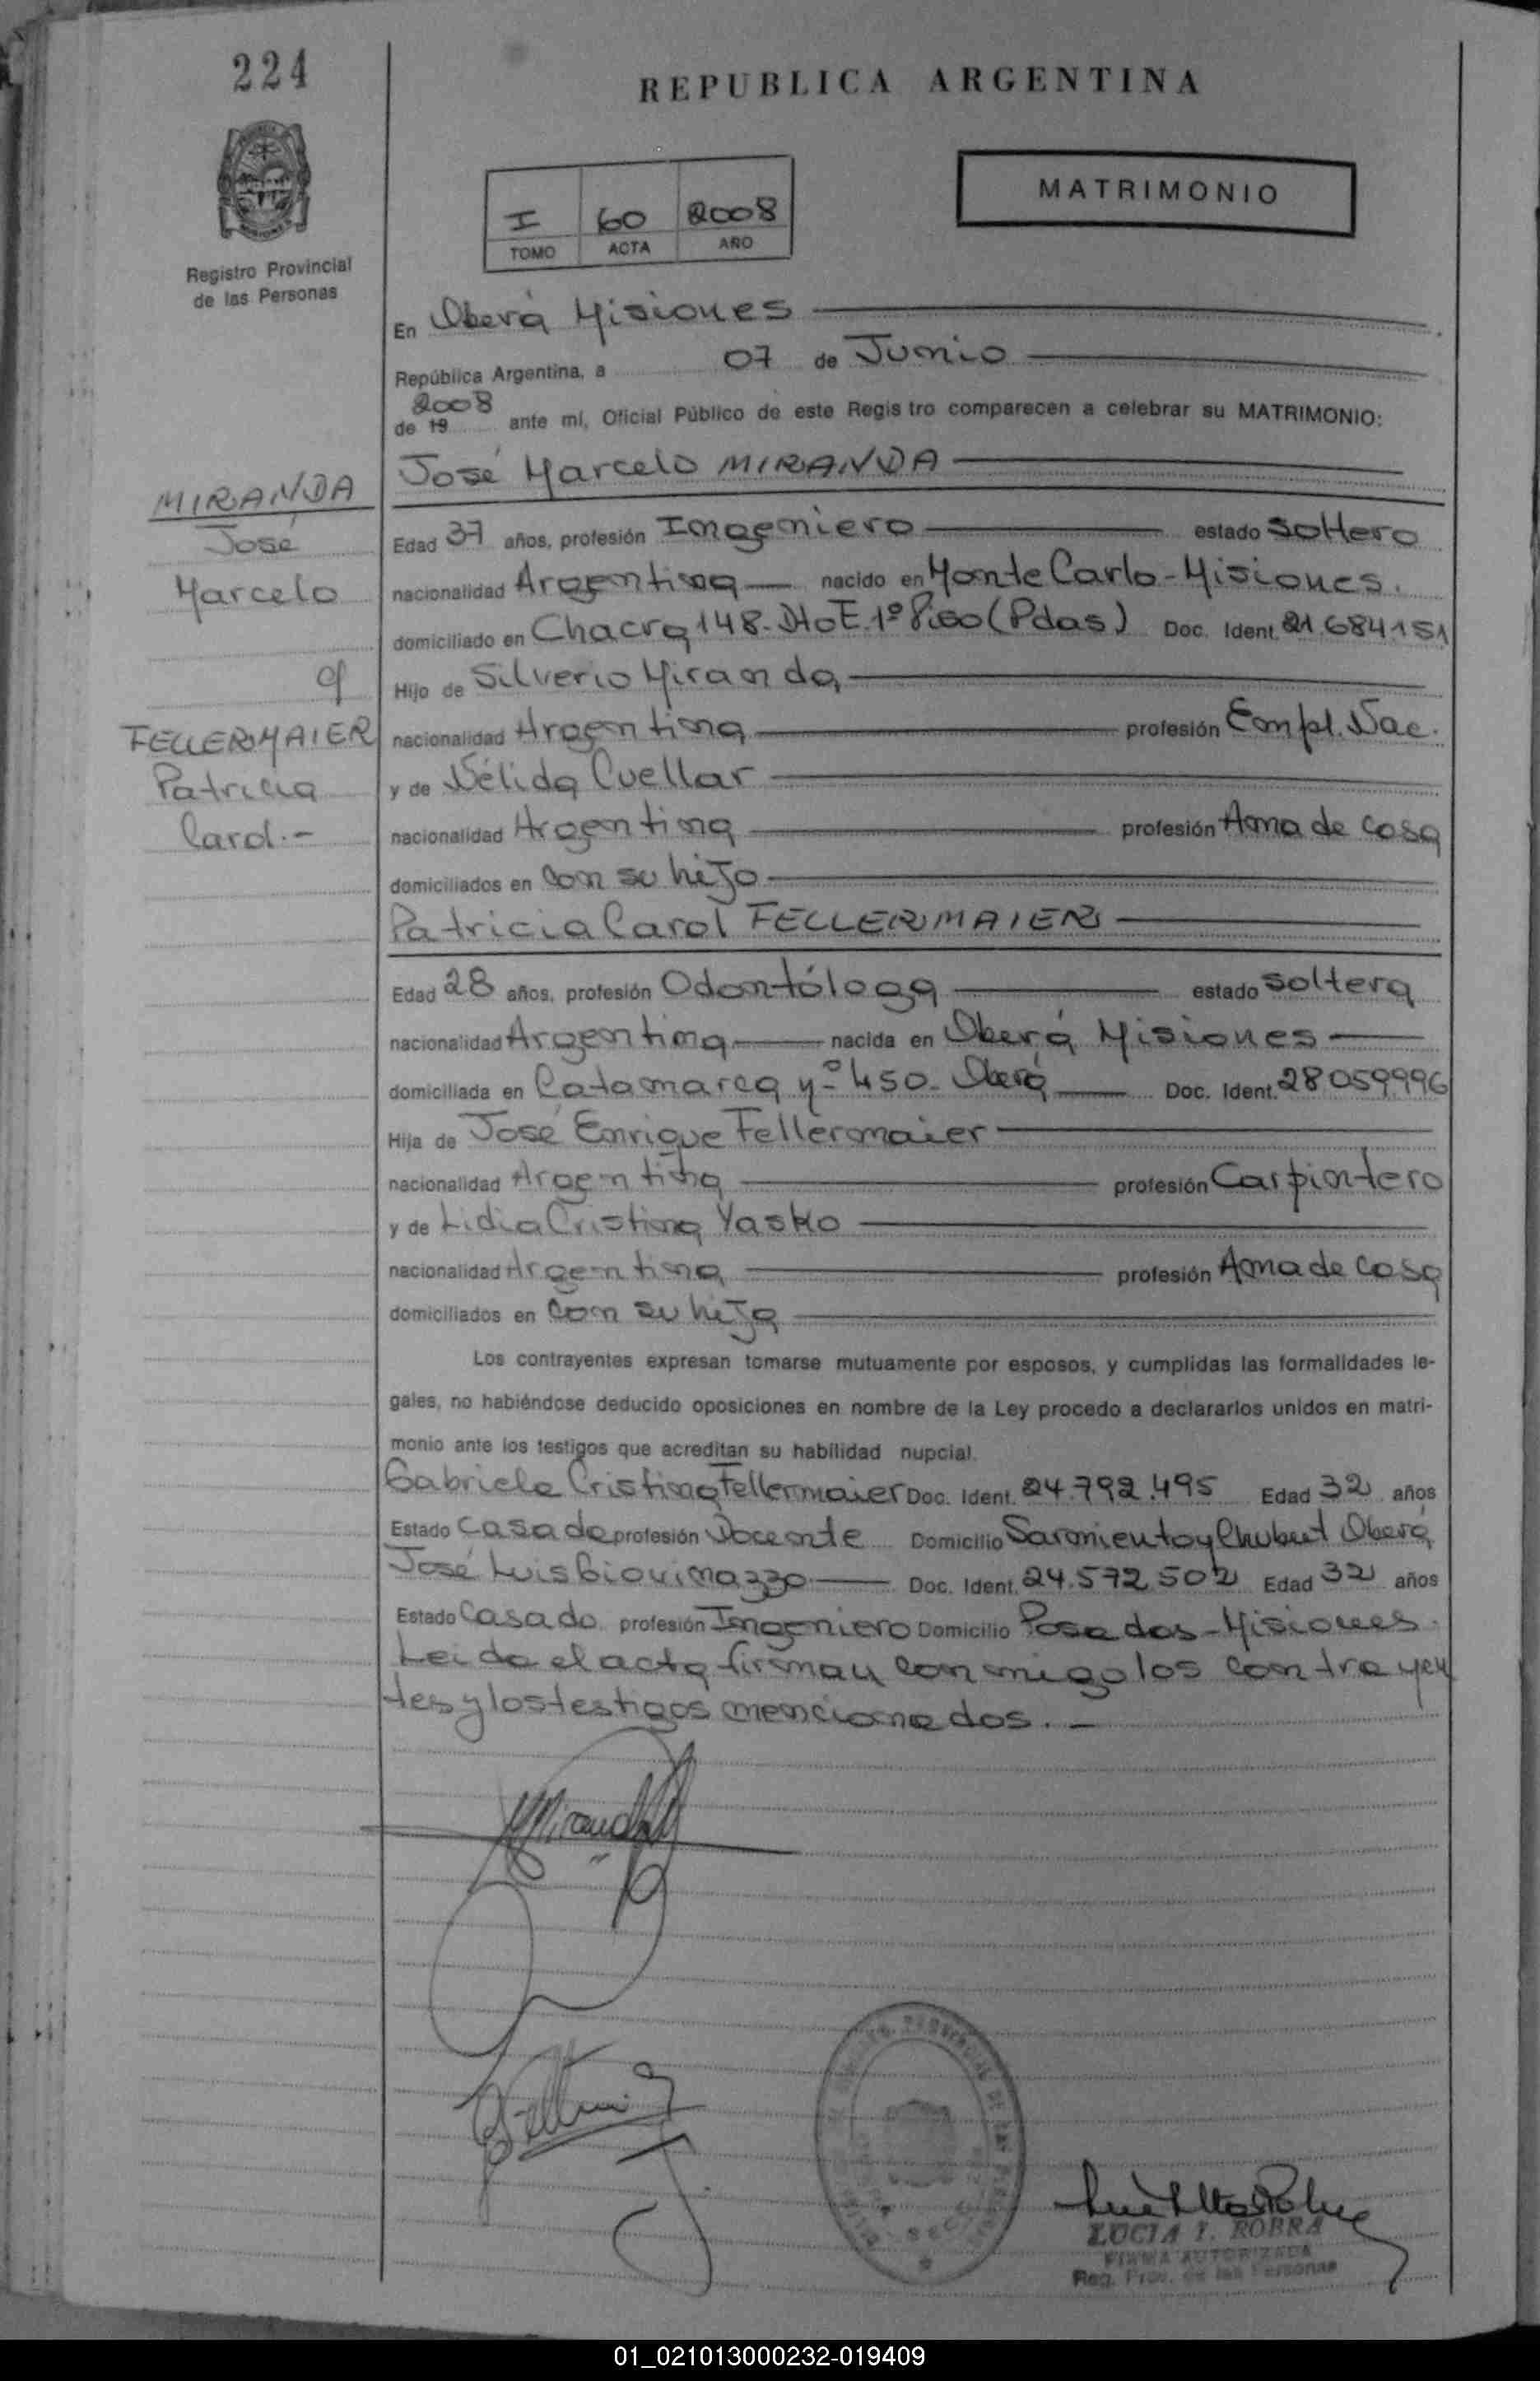 224
REPUBLICA ARGENTINA
MATRIMONIO
I 60 2008
TOMO ACTA AÑO
Registro Provincial
de las Personas
En Oberá Misiones
República Argentina, a 07 de Junio
2008
de 19 ante mí, Oficial Público de este Registro comparecen a celebrar su MATRIMONIO:
José Marcelo MIRANDA
MIRANDA
José
Marcelo
c/
FELLERMAIER
Patricia
Carol.-
Edad 37 años, profesión Ingeniero estado soltero
nacionalidad Argentina nacido en Monte Carlo - Misiones.
domiciliado en Chacra 148- Dto E. 1º Piso (Pdas) Doc. Ident. 21.684151
Hijo de Silverio Miranda
nacionalidad Argentina profesión Empl. Nac.
y de Nélida Cuellar
nacionalidad Argentina profesión Ama de casa
domiciliados en con su hijo
Patricia Carol FELLERMAIER
Edad 28 años, profesión Odontóloga estado soltera
nacionalidad Argentina nacida en Oberá Misiones
domiciliada en Catamarca Nº 450- Oberá Doc. Ident. 28059996
Hija de José Enrique Fellermaier
nacionalidad Argentina profesión Carpintero
y de Lidia Cristina Yasko
nacionalidad Argentina profesión Ama de casa
domiciliados en con su hija
Los contrayentes expresan tomarse mutuamente por esposos, y cumplidas las formalidades le-
gales, no habiéndose deducido oposiciones en nombre de la Ley procedo a declararlos unidos en matri-
monio ante los testigos que acreditan su habilidad nupcial.
Gabriela Cristina Fellermaier Doc. Ident. 24.792.495 Edad 32 años
Estado Casada profesión Docente Domicilio Sarmiento y Chubut Oberá
José Luis Giovinazzo Doc. Ident. 24.572.502 Edad 32 años
Estado Casado profesión Ingeniero Domicilio Posadas - Misiones.
Leida el acta firman conmigo los contrayen
tes y los testigos mencionados. -
LUCIA I. ROBRA
FIRMA AUTORIZADA
Reg. Prov. de las Personas
01_021013000232-019409